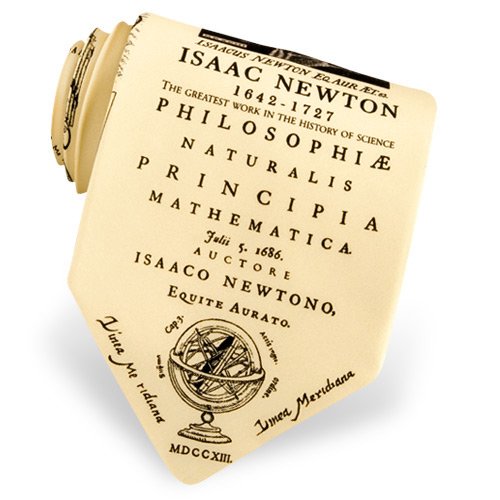 ISAACUS NEWTON EQ. AUR. ÆT.
ISAAC NEWTON
1642-1727
THE GREATEST WORK IN THE HISTORY OF SCIENCE
PHILOSOPHIÆ
NATURALIS
PRINCIPIA
MATHEMATICA.
Julii 5. 1686.
AUCTORE
ISAACO NEWTONO,
EQUITE AURATO.
Cap3.
Linea Meridiana
Linea Meridiana
MDCCXIII.